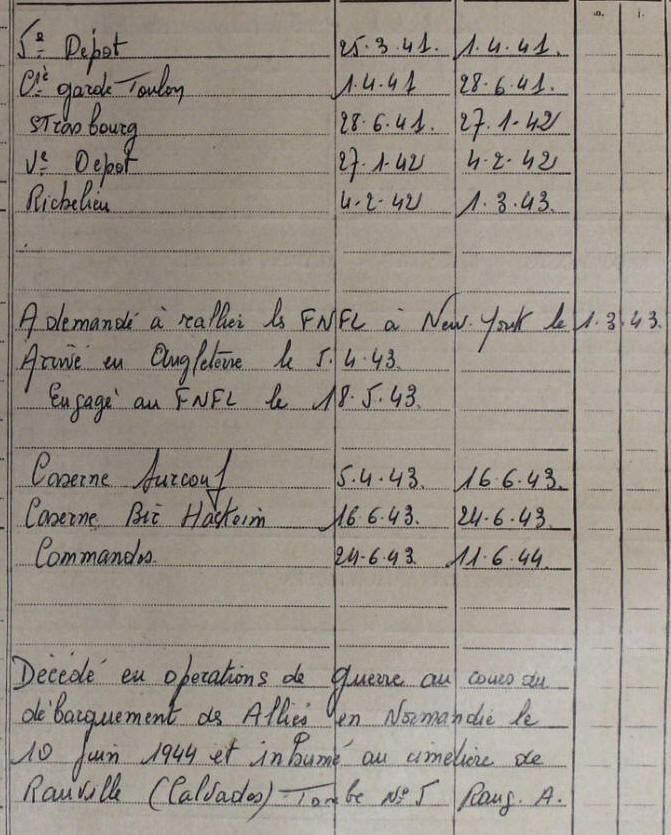 5e Dépot 25.3.41. 1.4.41.
Cie garde Toulon 1.4.41 28.6.41.
Strasbourg 28.6.41. 27.1.42
Ve Depot 27.1.42 4.2.42
Richelieu 4.2.42 1.3.43.
A demandé à rallier ls FNFL à New-York le 1.3.43.
Arrivé en Angleterre le 5.4.43.
Engagé au FNFL le 18.5.43.
Caserne Surcouf 5.4.43. 16.6.43.
Caserne Bir Hackeim 16.6.43. 24.6.43.
Commandos. 24.6.43. 11.6.44
Décédé en opérations de guerre au cours du
débarquement des Alliés en Normandie le
10 Juin 1944 et inhumé au cimetière de
Ranville (Calvados) - Tombe No 5 Rang. A.